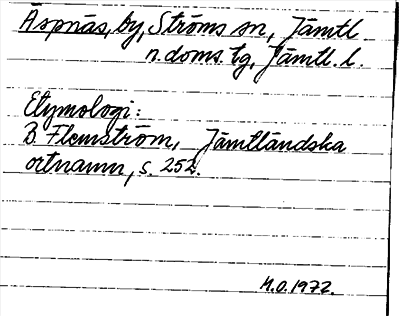 Äspnäs, by, Ströms sn, Jämtl.
n. doms. tg, Jämtl. l.
Etymologi:
B. Flemström, Jämtländska
ortnamn, s. 252.
M.O. 1972.